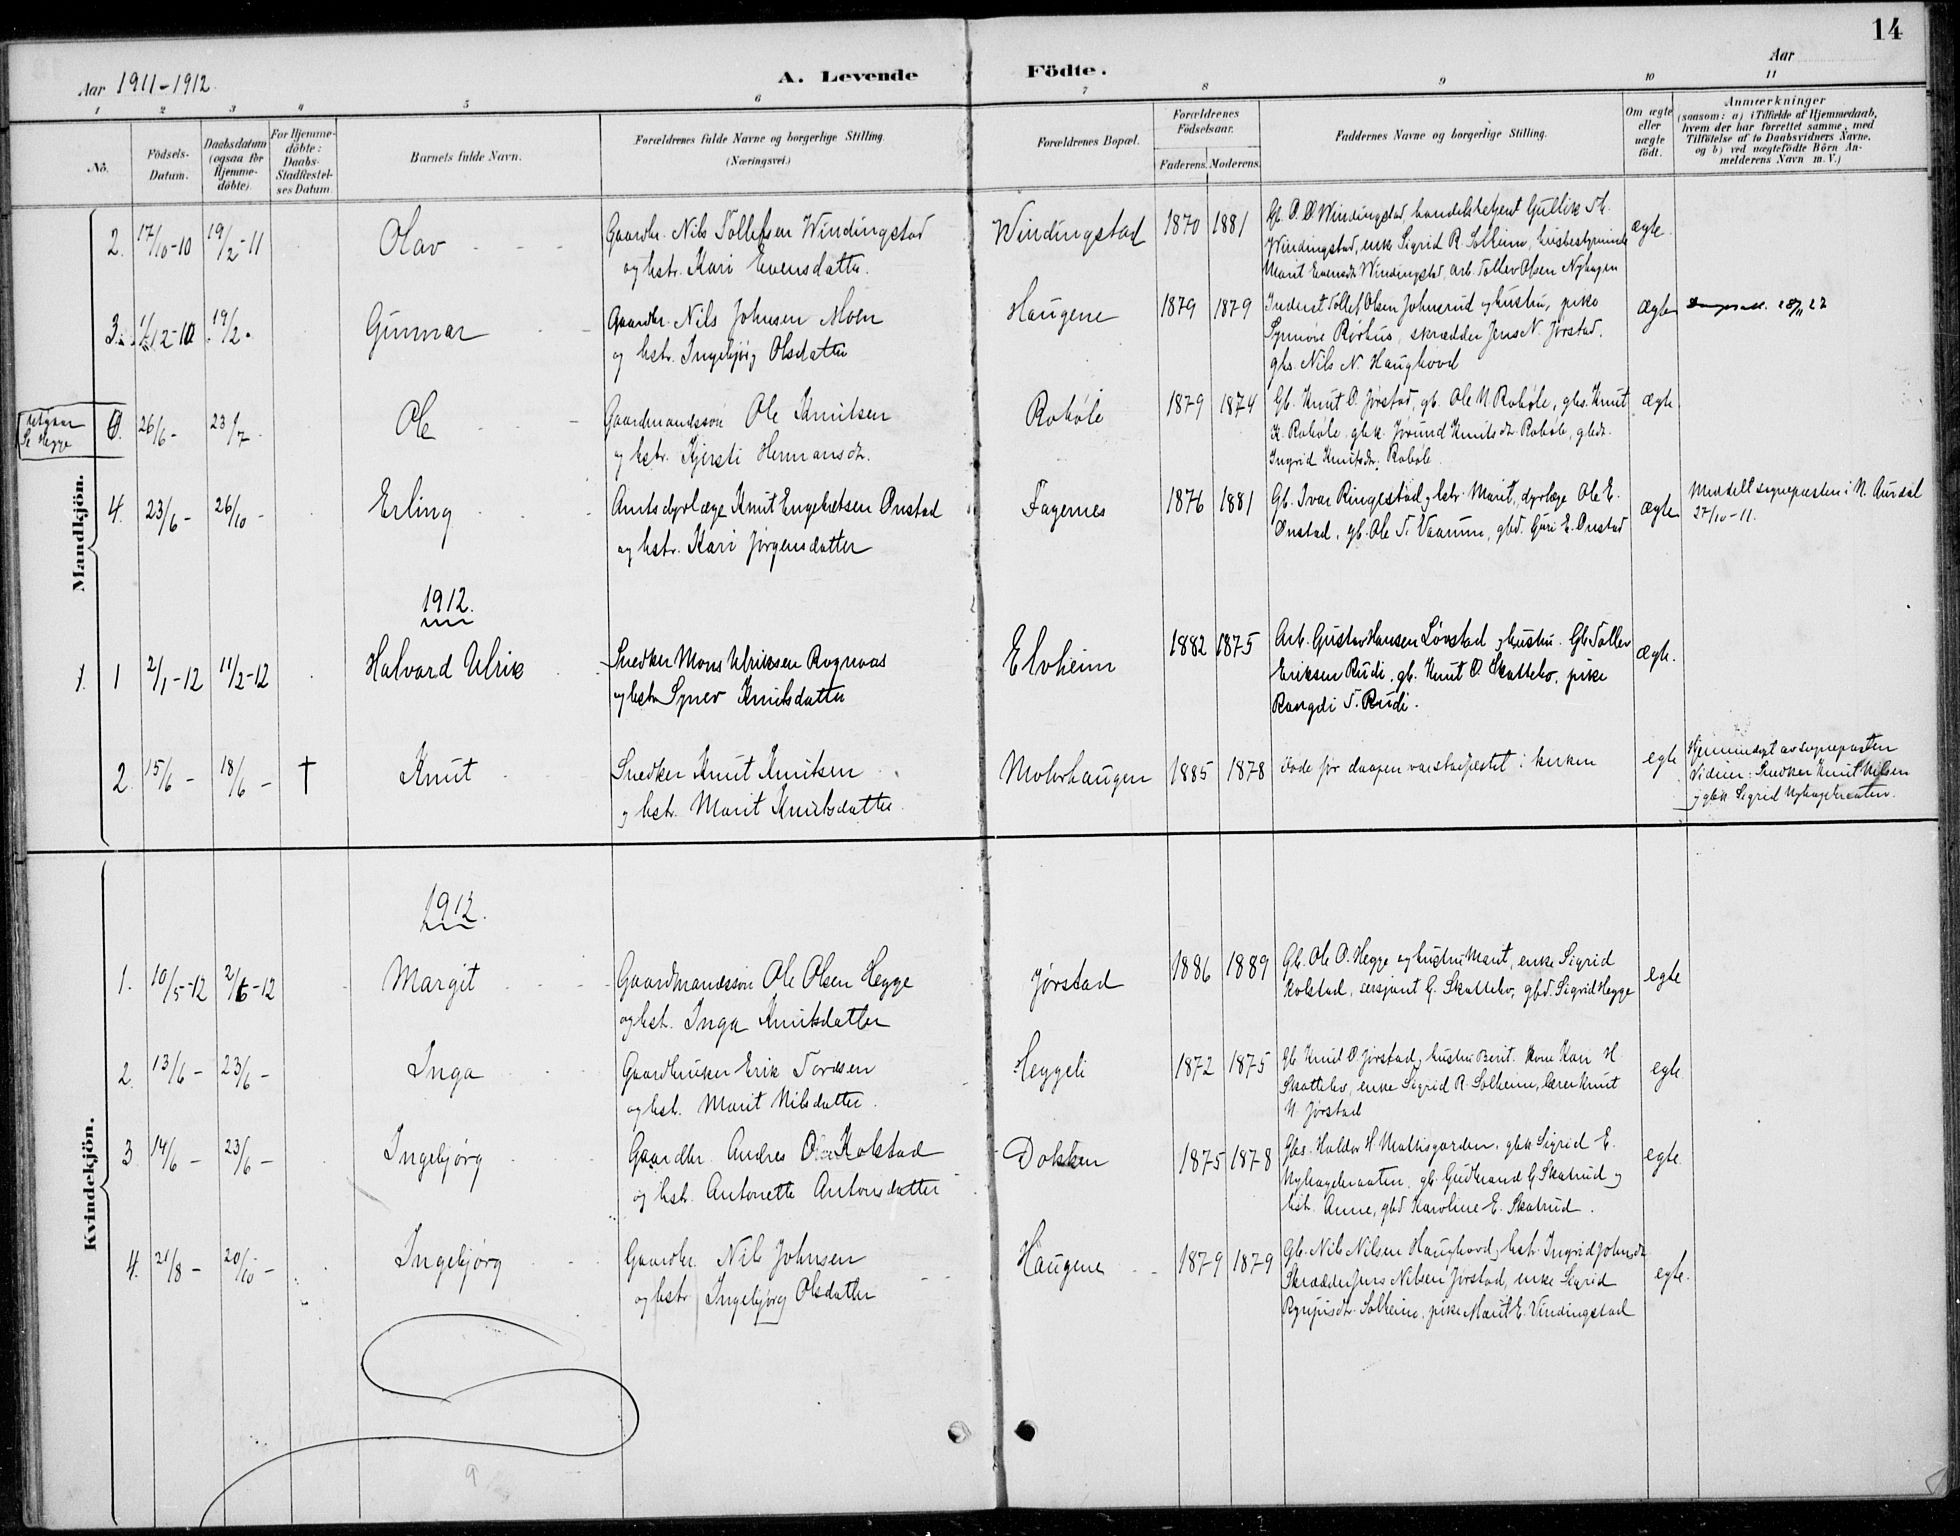 14
Aar 1911-1912.
A. Levende Födte.
Aar
1 2 3 4 5 6 7 8 9 10 11
Nö.
Födsels-Datum.
Daabsdatum (ogsaa for Hjemme-döbte).
For Hjemme-döbte: Daabs-Stadfæstel-ses Datum.
Barnets fulde Navn.
Forældrenes fulde Navne og borgerlige Stilling.
(Næringsvei.)
Forældrenes Bopæl.
Forældrenes Födselsaar.
Faderens. Moderens.
Faddernes Navne og borgerlige Stilling.
Om ægte eller uægte födt.
Anmærkninger
(saasom: a) i Tilfælde af Hjemmedaab,
hvem der har forrettet samme, med
Tilföielse af to Daabsvidners Navne.
og b) ved uægtefödte Börn An-
melderens Navn m. V.)
Mandkjön.
2. 17/10-10 19/2-11 Olav
Gaardbr. Nils Tollefsen Windingstad
og hstr. Kari Evensdatter.
Windingstad 1870 1881
Gb. O. O. Windingstad, handelsbetjent Gullik
Windingstad, enke Sigrid R. Solheim, husbestyrerinde
Marit Evensdtr Windingstad, arb. Tollev Olsen Nyhagen
ægte.
3. 12-10 19/2 Gunnar
Gaardbr. Nils Johnsen Moen
og hstr. Ingebjørg Olsdatter
Haugene 1879 1879
Inderst Tollef Olsen Johnsrud og hustru, pike
Synnøve Rørhus, skrædder Jens N. Jørstad.
gbs. Nils N. Haughovd
ægte 28/11 22
Se Hegge
26/6- 23/7 Ole
Gaardmandssøn Ole Knutsen
og hstr. Kjersti Hermansdtr.
Robøle 1879 1874
Gb. Knut O. Jørstad, gb. Ole N. Robøle, gbs. Knut
K. Robøle, gbk. Jørund Knutsdtr. Robøle, gbdt.
Ingrid Knutsdtr. Robøle.
ægte
4. 23/6- 26/10- Erling
Amtsdyrlæge Knut Engebretsen Onstad
og hstr. Kari Jørgensdatter
Fagernes 1876 1881
Gb. Ivar Ringestad og hstr. Marit, dyrlæge Ole E.
Onstad, gb. Ole T. Vaarum, gbd. Guri E. Onstad
ægte
Meddelt sognepresten i N. Aurdal
27/10-11.
1912.
1. 1 2/1-12 11/2-12 Halvard Ulrik
Snedker Mons Ulriksen Rognaas
og hstr Synev Knutsdatter
Elvheim 1882 1875
Arb. Gustav Hansen Løvstad og hustru. Gb. Tollev
Eriksen Rudi, gb. Knut O. Skattebo, pike
Rangdi T. Rudi.
ægte.
2. 15/6- 18/6- † Knut
Snedker Knut Knutsen
og hstr. Marit Knutsdatter.
Molorhaugen 1885 1878
døde før daapen var stadfestet i kirken
egte
Hjemmedøpt av sognepresten
Vidner: Snedker Knut Nilsen
og gbk. Sigrid Nyhagebraaten.
Kvindekjön.
1912.
1. 10/5-12 2/6-12 Margit
Gaardmandssøn Ole Olsen Hegge
og hstr. Inga Knutsdatter
Jørstad 1886 1889
Gb. Ole O. Hegge og hustru Marit, enke Sigrid
Kolstad, sersjant G. Skattebo, gbd. Sigrid Hegge
egte
2. 13/6- 23/6- Inga
Gaardbruker Erik Tordsen
og hst. Marit Nilsdatter.
Heggeli 1872 1875
Gb. Knut O. Jørstad og hustru Berit. kone Kari H.
Skattebo, enke Sigrid R. Solheim, lærer Knut
N. Jørstad
egte
3 14/6- 23/6- Ingebjørg
Gaardbr. Andres Olsen Kolstad
og hst. Antonette Antonsdatter
Dokken 1875 1878
Gbs. Haldor H Mathisgarden, gbk Sigrid E.
Nyhagebraaten, gb. Gudbrand G. Skatrud og
hst. Anne, gbd Karoline E. Skatrud.
egte.
4. 21/8- 20/10- Ingebjørg
Gaardbr. Nils Johnsen
og hstr Ingebjørg Olsdatter
Haugene 1879 1879
Gb. Nils Nilsen Haughovd og hst. Ingrid Johnsdtr.
Skrædder Jens Nilsen Jørstad, enke Sigrid
Solheim, pike Marit E. Vindingstad
egte.
9